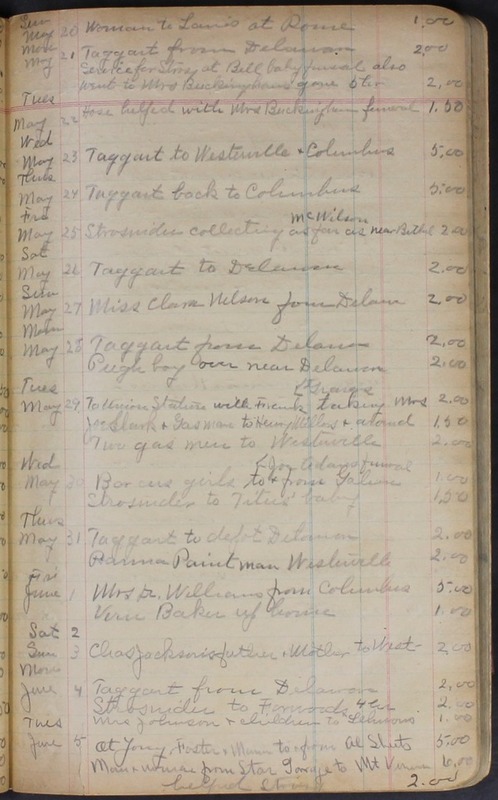 Sun
May 20 Woman to Lewis at Rome 1.00
Mon
May 21 Taggart from Delaware 2.00
Service for Story at Bell baby funeral also
went to Mrs Buckinghams gone 5 hr 2.00
Tues
May 22 helped with Mrs Buckingham funeral 1.50
Wed
May 23 Taggart to Westerville + Columbus 5.00
Thurs
May 24 Taggart back to Columbus 5.00
Fri
McWilson
May 25 Strosnider collecting as far as near Bethel 2.00
Sat
May 26 Taggart to Delaware 2.00
Sun
May 27 Miss Clara Wilson from Delaw 2.00
Mon
May 28 Taggart from Delaware 2.00
Pugh boy over near Delaware 2.00
Tues
May 29 To Union Station with Frank taking Mrs 2.00
Joe + Gas man to Henry + around 1.50
Two gas men to Westerville 2.00
Wed
for Adams funeral
May 30 girls to + from Galena 1.00
Strosnider to Titus' baby 1.50
Thurs
May 31 Taggart to depot Delaware 2.00
Paint man Westerville 2.00
Fri
June 1 Mrs Dr. Williams from Columbus 5.00
Vern Baker up home 1.00
Sat 2
Sun 3 Chas Jacksons father + Mother to West- 2.00
Mon
June 4 Taggart from Delaware 2.00
Strosnider to 4 hr 2.00
Tues Mrs Johnson + children to 1.00
June 5 Foster + to + from 5.00
Man + woman from Star Garage to Mt Vernon 6.00
helped 2.00